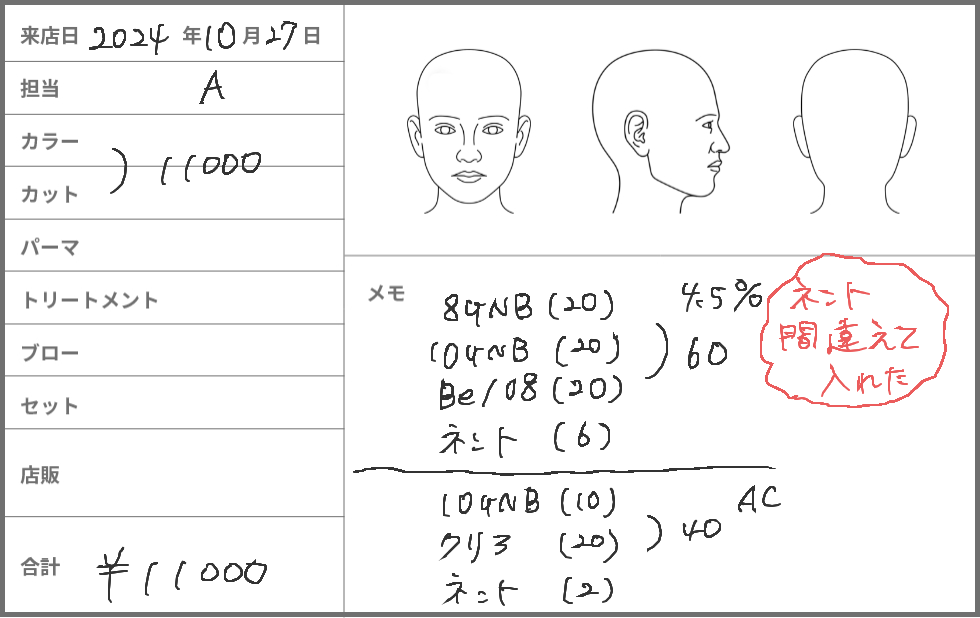 来店日 2024 年 10 月 27 日
担当 A
カラー
) 11000
カット
パーマ
トリートメント
ブロー
セット
店販
合計 ¥11000
メモ
84NB (20) 4.5%
104NB (20) ) 60
Be/08 (20)
ネント (6)
104NB (10) AC
クリア (20) ) 40
ネント (2)
ネント
間違えて
入れた